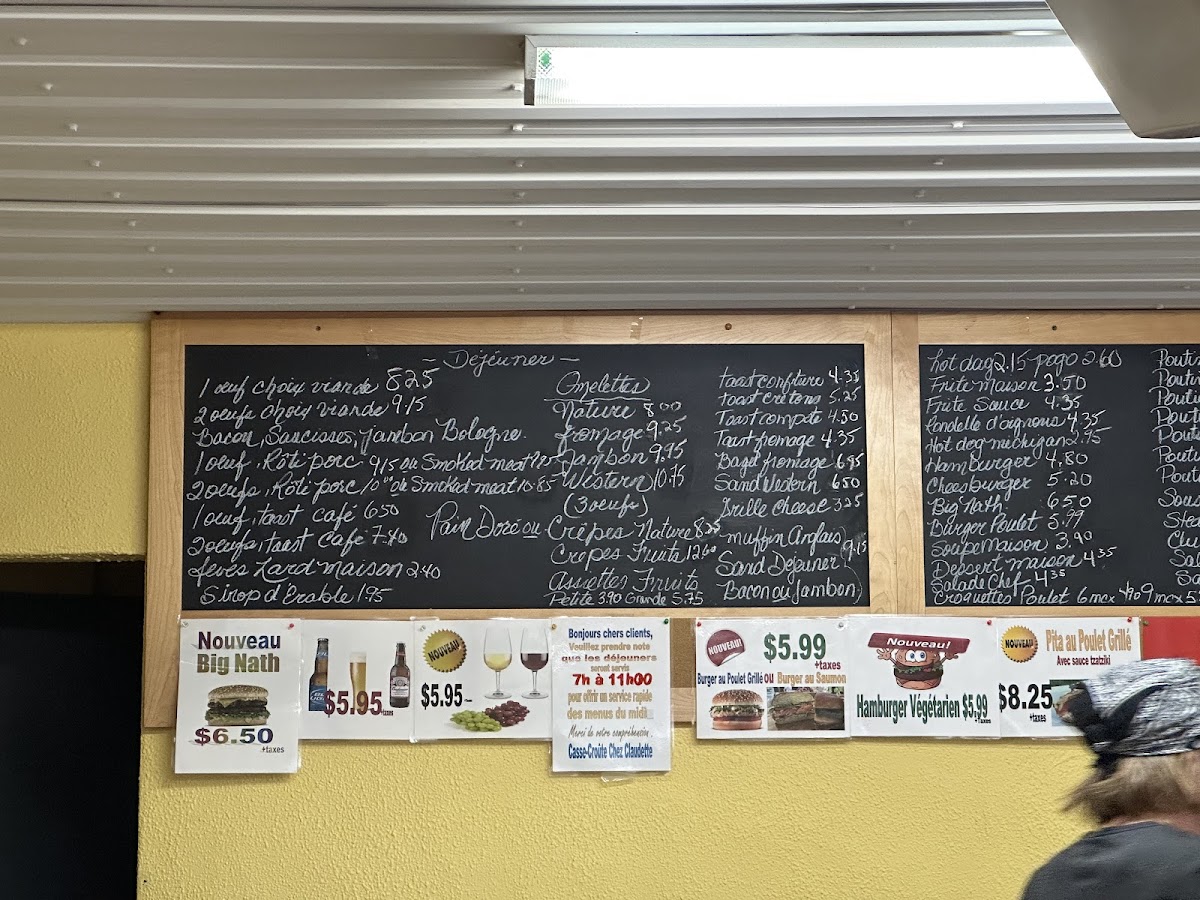 - Déjeuner -
1 oeuf choix viande 8.25
2 oeufs choix viande 9.15
Bacon, Saucisses, Jambon Bologne.
1 oeuf, Rôti porc 9.15 ou Smoked meat
2 oeufs, Rôti porc 10 ou Smoked meat 10.85
1 oeuf, toast café 6.50
2 oeufs, toast café 7.40
fèves Lard maison 2.40
Sirop d'Érable 1.95
Omelettes
Nature 8.00
fromage 9.25
Jambon 9.75
Western 10.75
(3 oeufs)
Pain Doré ou Crêpes Nature 8.25
Crêpes Fruits 12.60
Assiettes Fruits
Petite 3.90 Grande 5.75
toast confiture 4.35
toast cretons 5.25
Toast compote 4.50
Toast fromage 4.35
Bagel fromage 6.95
Sand Western 6.50
Grille cheese 3.25
muffin Anglais
Sand Déjeuner 9.15
Bacon ou Jambon
hot dog 2.15 pogo 2.60
Frite maison 3.50
Frite Sauce 4.35
Rondelle d'oignons 4.35
Hot dog michigan 2.95
Hamburger 4.80
Cheesburger 5.20
Big Nath 6.50
Burger Poulet 5.99
Soupe Maison 3.90
Dessert maison 4.35
Salade Chef 4.35
Croquettes Poulet 6 mcx 9 mcx
Nouveau
Big Nath
$6.50
+taxes
$5.95
+taxes
NOUVEAU!
$5.95
Bonjours chers clients,
Veuillez prendre note
que les déjeuners
seront servis
7h à 11h00
pour offrir un service rapide
des menus du midi
Merci de votre compréhension.
Casse-Croûte Chez Claudette
NOUVEAU!
$5.99
+taxes
Burger au Poulet Grillé ou Burger au Saumon
Nouveau!
Hamburger Végétarien $5.99
+taxes
NOUVEAU!
Pita au Poulet Grillé
Avec sauce tzatziki
$8.25
+taxes